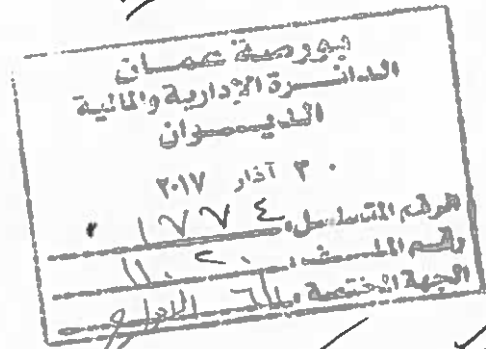 بورصة عمان
الدائرة الإدارية والمالية
الديوان
٣٠ آذار ٢٠١٧
الرقم المتسلسل: ١٧٧٤
رقم الملف:
الجهة المختصة: